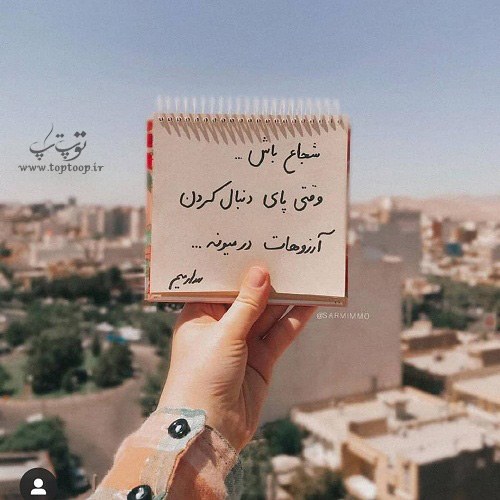 توپ تاپ
www.toptoop.ir
شجاع باش ...
وقتی پای دنبال کردن
آرزوهات درمیونه ...
@SARMIMMO